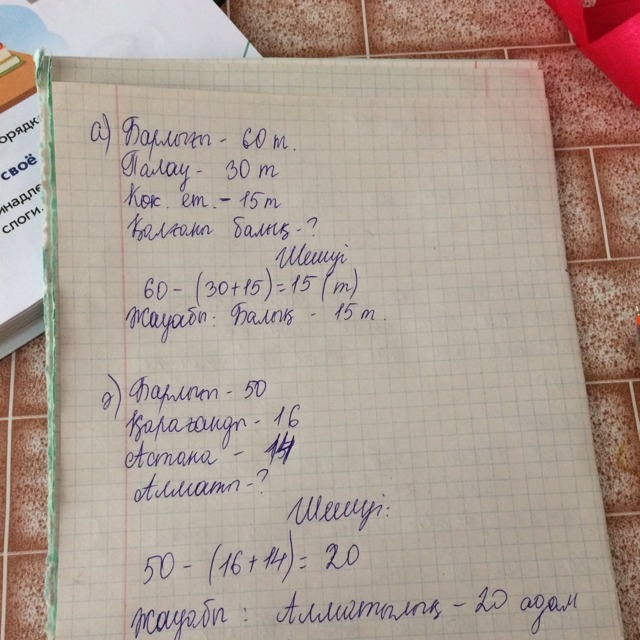 орядк
своё
инадле
слоги.
а) Барлығы - 60 т.
Палау - 30 т
Көк. ет. - 15 т
Қалғаны балық - ?
Шешуі
60 - (30+15) = 15 (т)
Жауабы: Балық - 15 т.
ә) Барлығы - 50
Қарағанды - 16
Астана - 14
Алматы - ?
Шешуі:
50 - (16+14) = 20
Жауабы: Алматылық - 20 адам